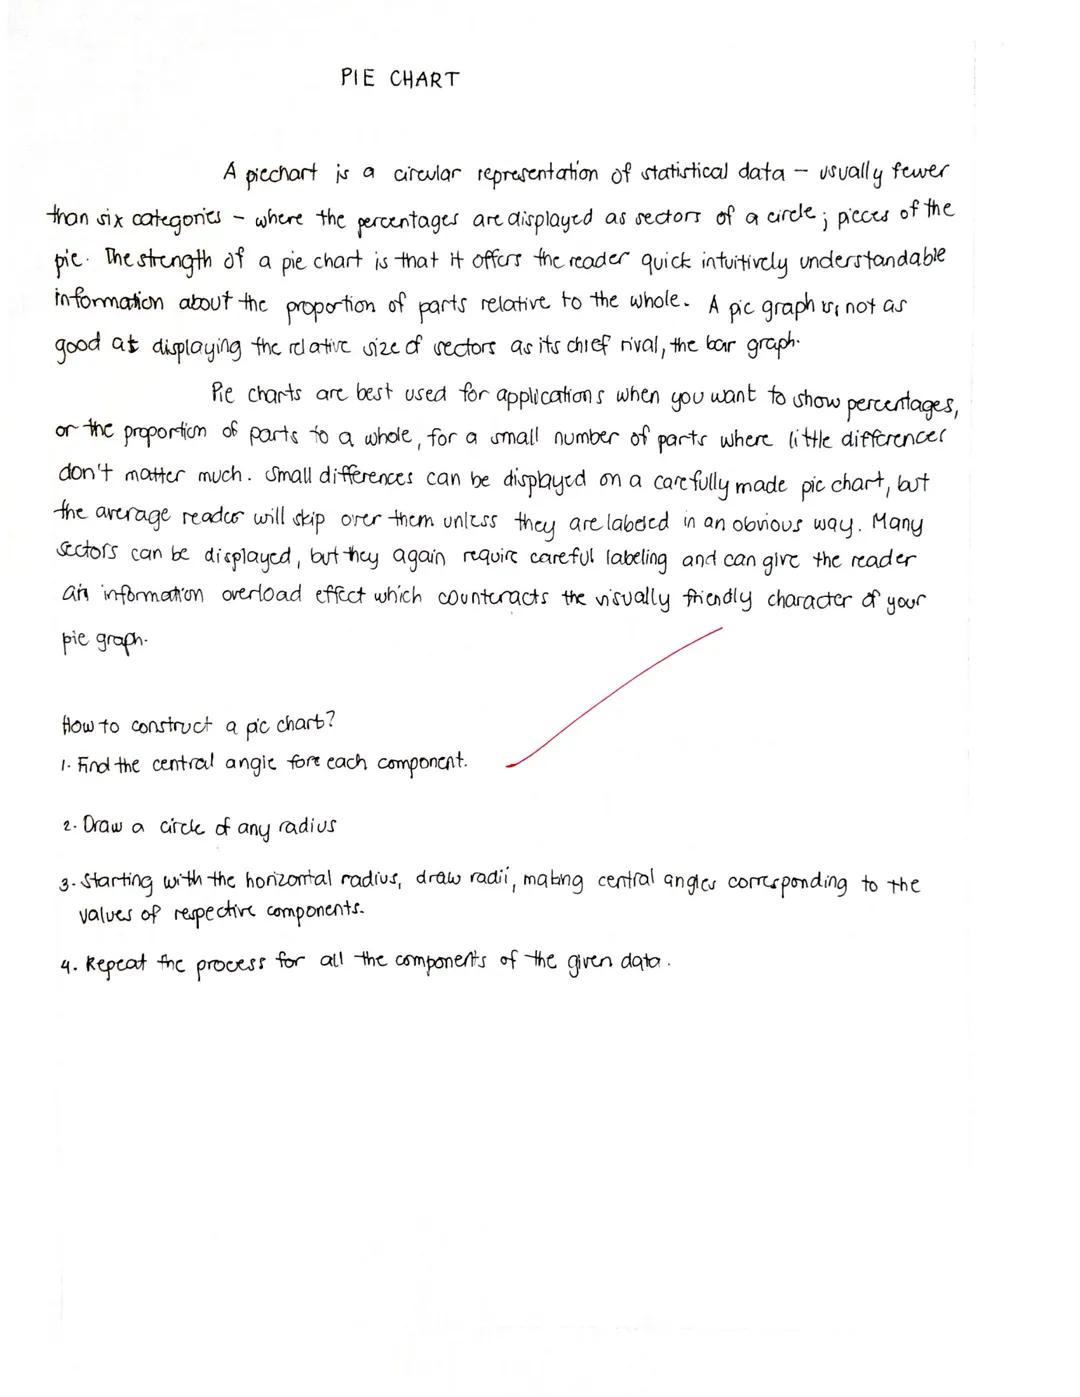 PIE CHART
A piechart is a circular representation of statistical data – usually fewer
than six categories – where the percentages are displayed as sectors of a circle; pieces of the
pie. The strength of a pie chart is that it offers the reader quick intuitively understandable
information about the proportion of parts relative to the whole. A pie graph is not as
good at displaying the relative size of sectors as its chief rival, the bar graph.
Pie charts are best used for applications when you want to show percentages,
or the proportion of parts to a whole, for a small number of parts where little differences
don't matter much. Small differences can be displayed on a carefully made pie chart, but
the average reader will skip over them unless they are labeled in an obvious way. Many
sectors can be displayed, but they again require careful labeling and can give the reader
an information overload effect which counteracts the visually friendly character of your
pie graph.
How to construct a pie chart?
1. Find the central angle fore each component.
2. Draw a circle of any radius
3. Starting with the horizontal radius, draw radii, making central angles corresponding to the
values of respective components.
4. Repeat the process for all the components of the given data.